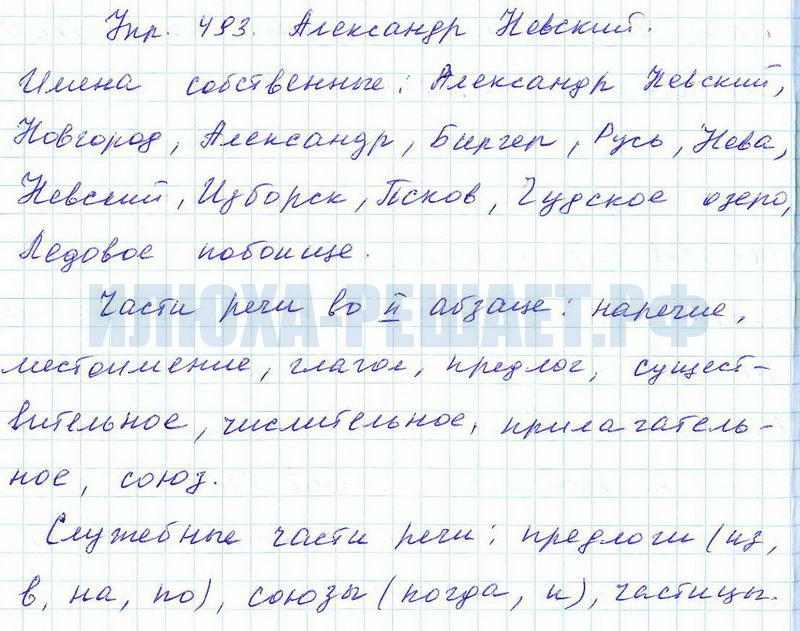 Упр. 493. Александр Невский.
Имена собственные: Александр Невский,
Новгород, Александр, Биргер, Русь, Нева,
Невский, Изборск, Псков, Чудское озеро,
Ледовое побоище.
Части речи во II абзаце: наречие,
ИЛЮХА-РЕШАЕТ.РФ
местоимение, глагол, предлог, сущест-
вительное, числительное, прилагатель-
ное, союз.
Служебные части речи: предлоги (из,
в, на, по), союзы (когда, и), частицы.